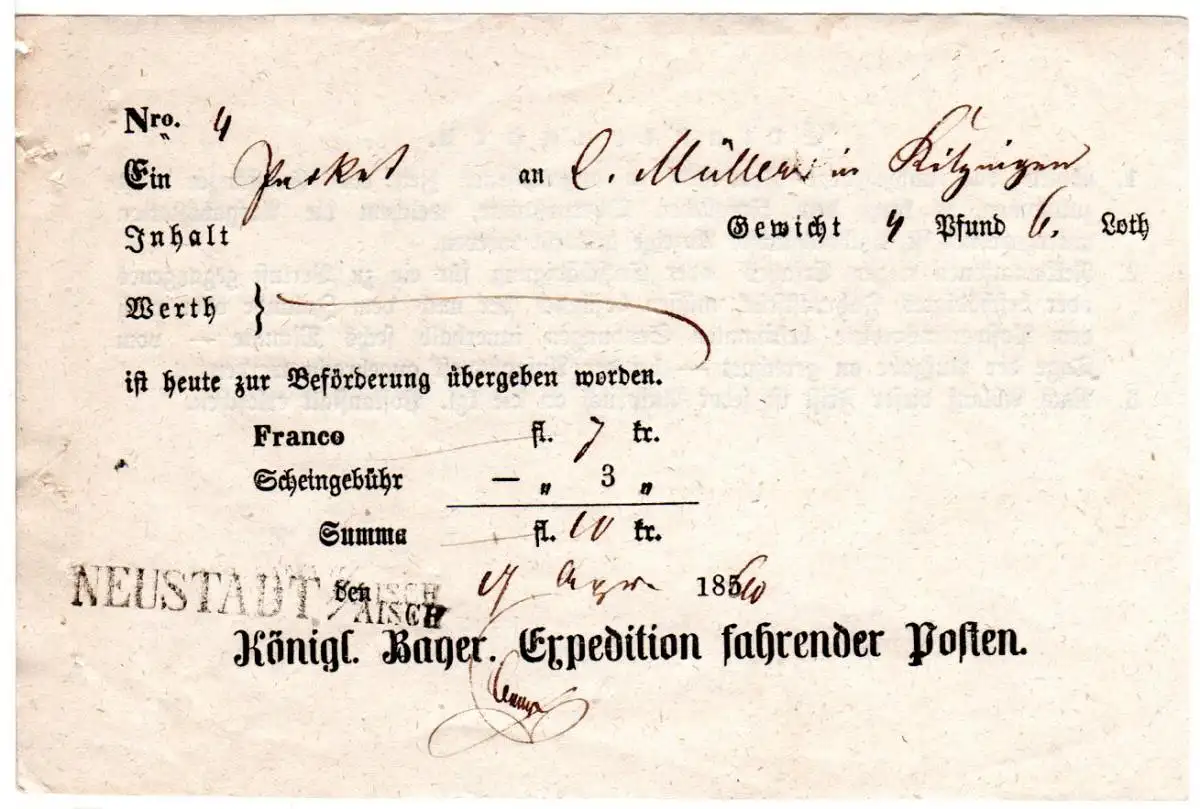 Nro. 4
Ein Parket an C. Müller in Kitzingen
Inhalt Gewicht 4 Pfund 6. Loth
Werth }
ist heute zur Beförderung übergeben worden.
Franco fl. 7 kr.
Scheingebühr — „ 3 „
Summa fl. 10 kr.
NEUSTADT A/AISCH den 185
Königl. Bayer. Expedition fahrender Posten.